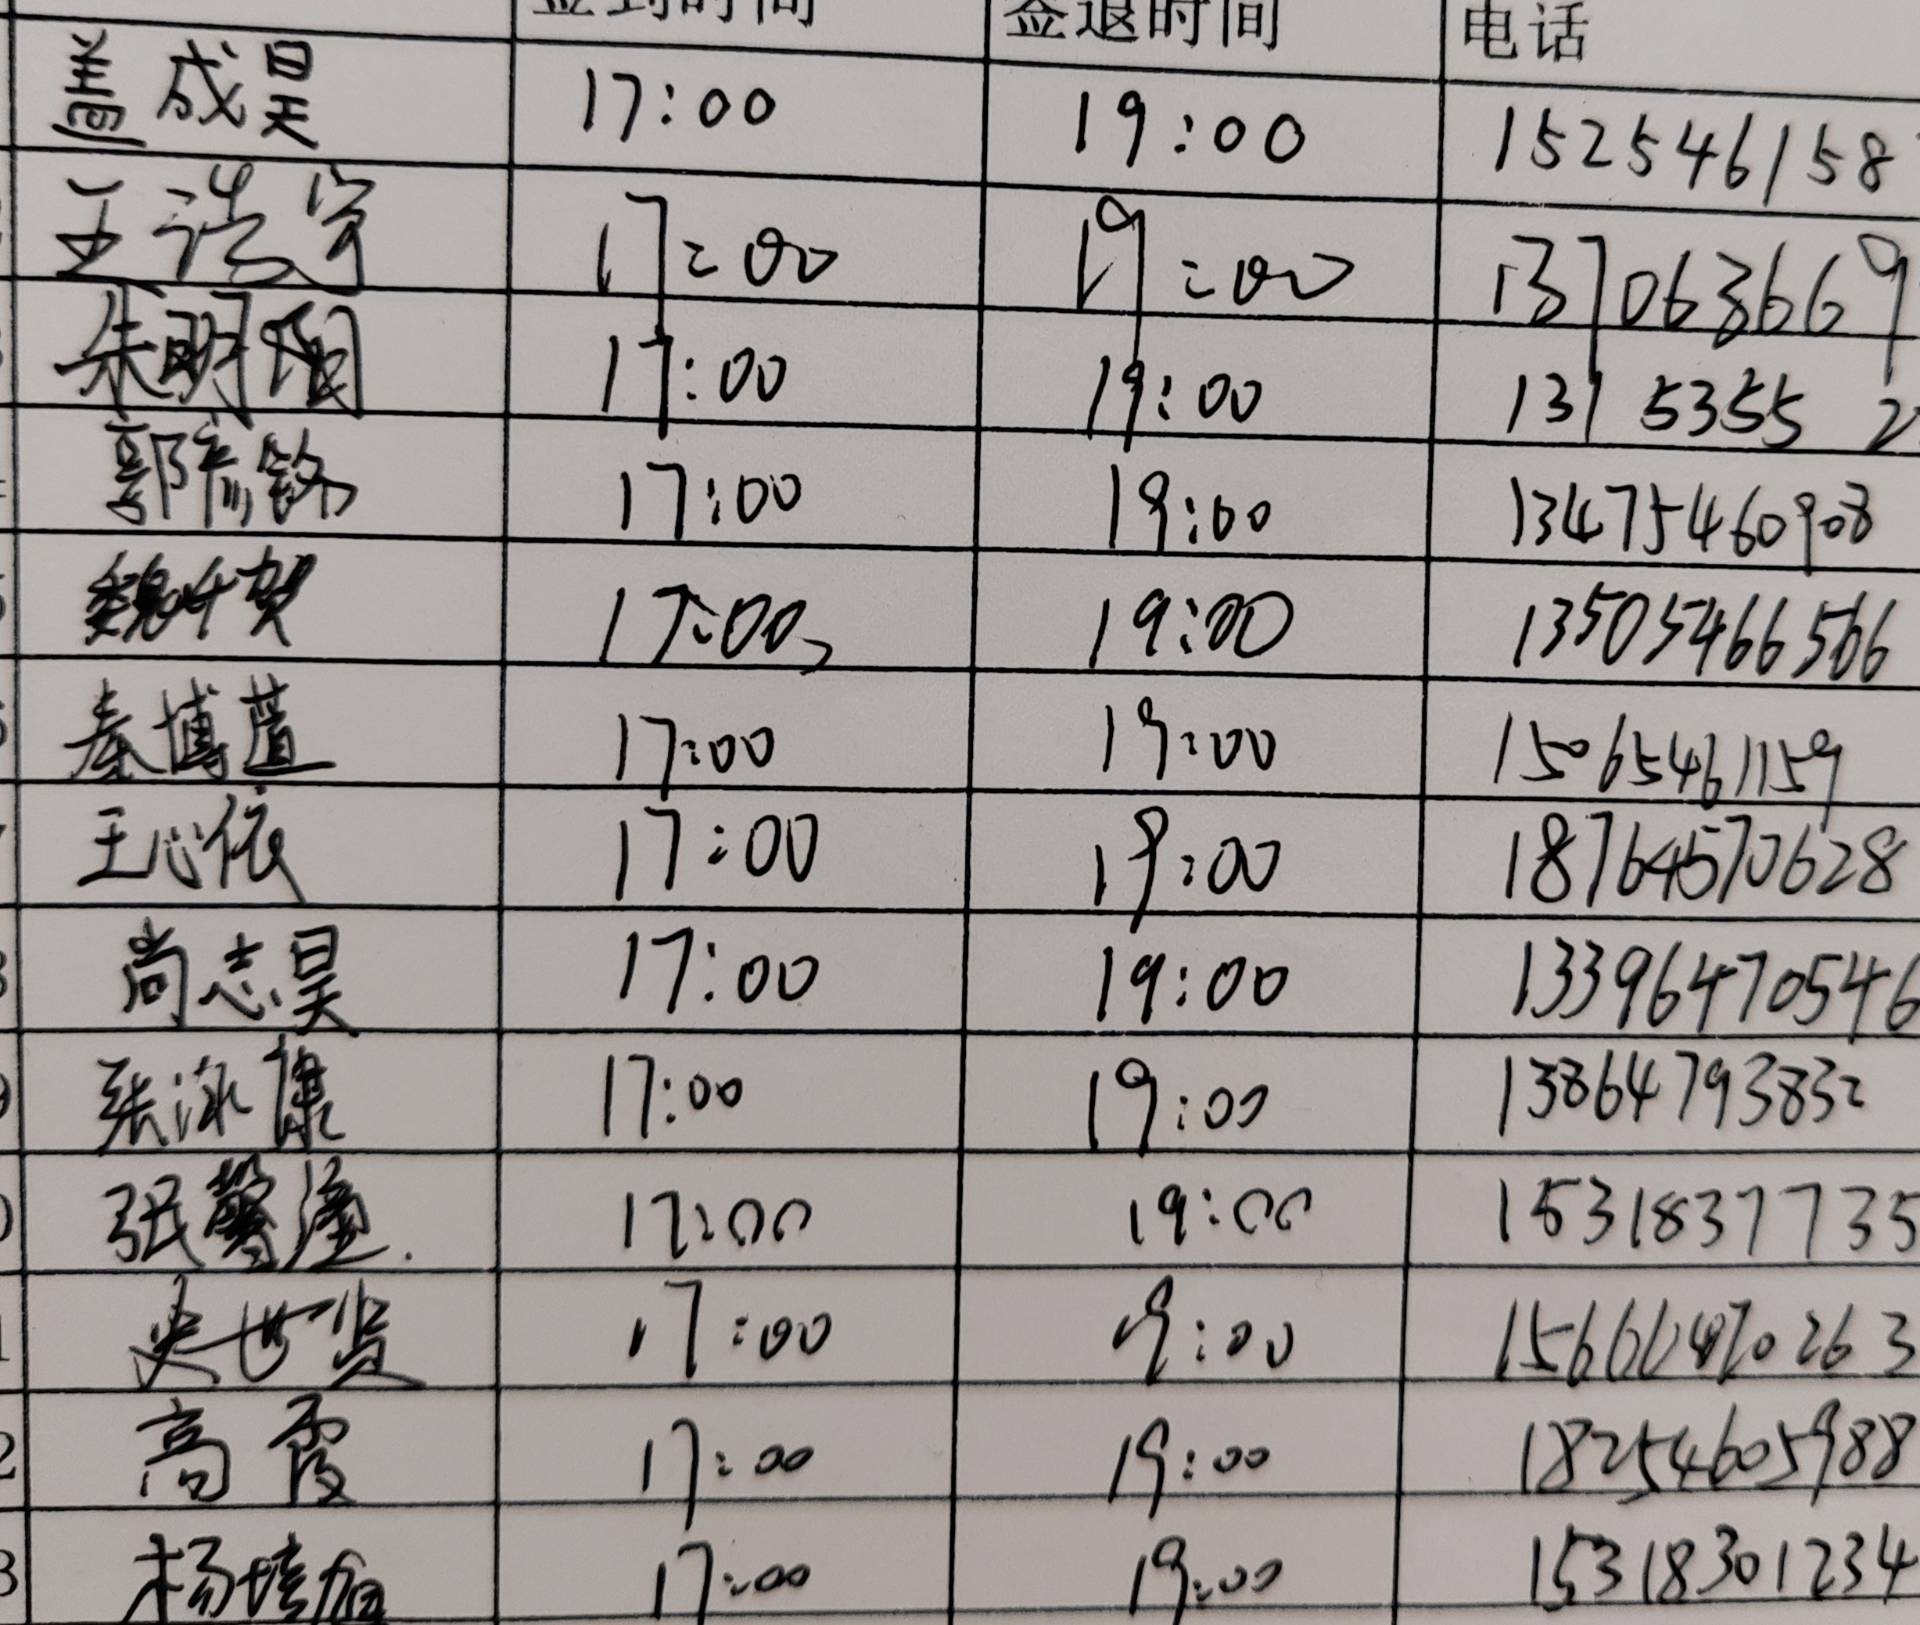 签到时间 签退时间 电话
盖成昊 17:00 19:00 152546158
王浩宇 17:00 19:00 137063669
朱明阳 17:00 19:00 13153552
郭彦铭 17:00 19:00 13475460908
魏千贺 17:00 19:00 13505466566
秦博蕴 17:00 19:00 15065461159
王心依 17:00 19:00 18764570628
尚志昊 17:00 19:00 13396470546
张泳康 17:00 19:00 13864793832
张馨滢 17:00 19:00 1531837735
17:00 19:00
高霞 17:00 19:00 18254605988
17:00 19:00 15318301234